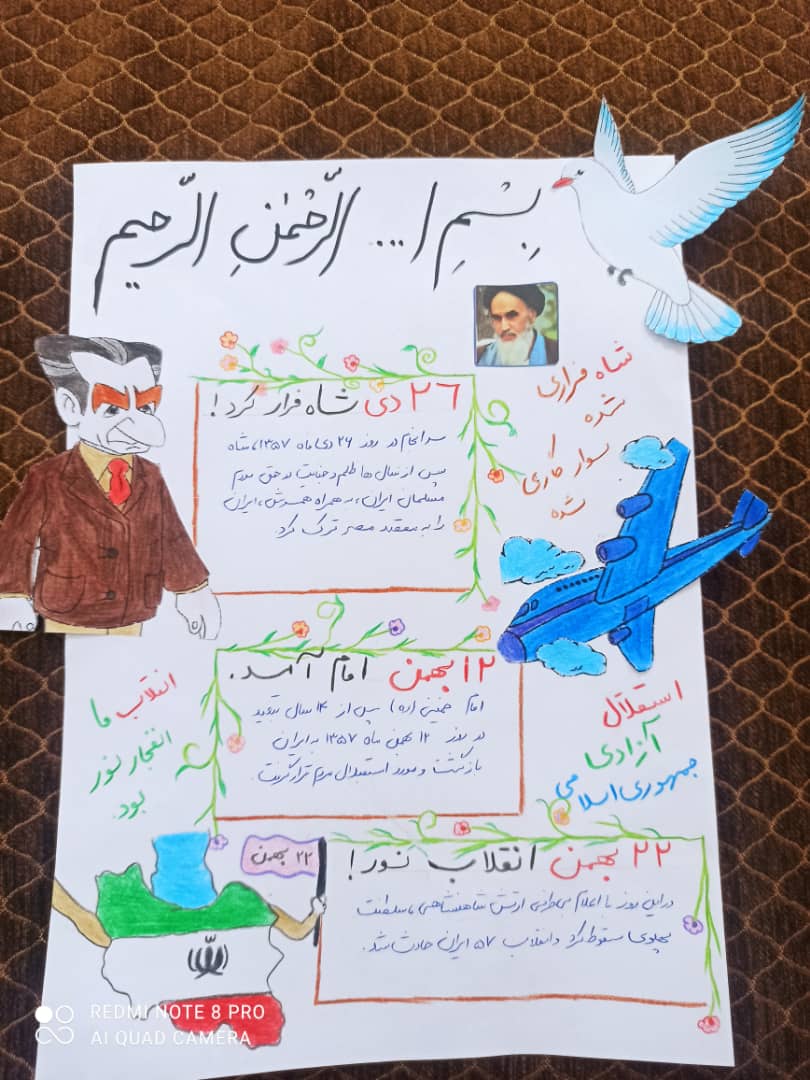 بِسْمِ ا... الرَّحْمٰنِ الرَّحیم
شاه فراری
شده
سوار گاری
شده
۲۶ دی شاه فرار کرد!
سرانجام در روز ۲۶ دی ماه ۱۳۵۷، شاه
پس از سال ها ظلم و خیانت در حق مردم
مسلمان ایران، به همراه همسرش، ایران
را به مقصد مصر ترک کرد
۱۲ بهمن امام آمد.
امام خمینی (ره) پس از ۱۴ سال تبعید
در روز ۱۲ بهمن ماه ۱۳۵۷ به ایران
بازگشت و مورد استقبال مردم قرار گرفت.
انقلاب ما
انفجار نور
بود.
استقلال
آزادی
جمهوری اسلامی
۲۲ بهمن
۲۲ بهمن انقلاب نور!
در این روز با اعلام بی طرفی ارتش شاهنشاهی، سلطنت
پهلوی سقوط کرد و انقلاب ۵۷ ایران حادث شد.
REDMI NOTE 8 PRO
AI QUAD CAMERA